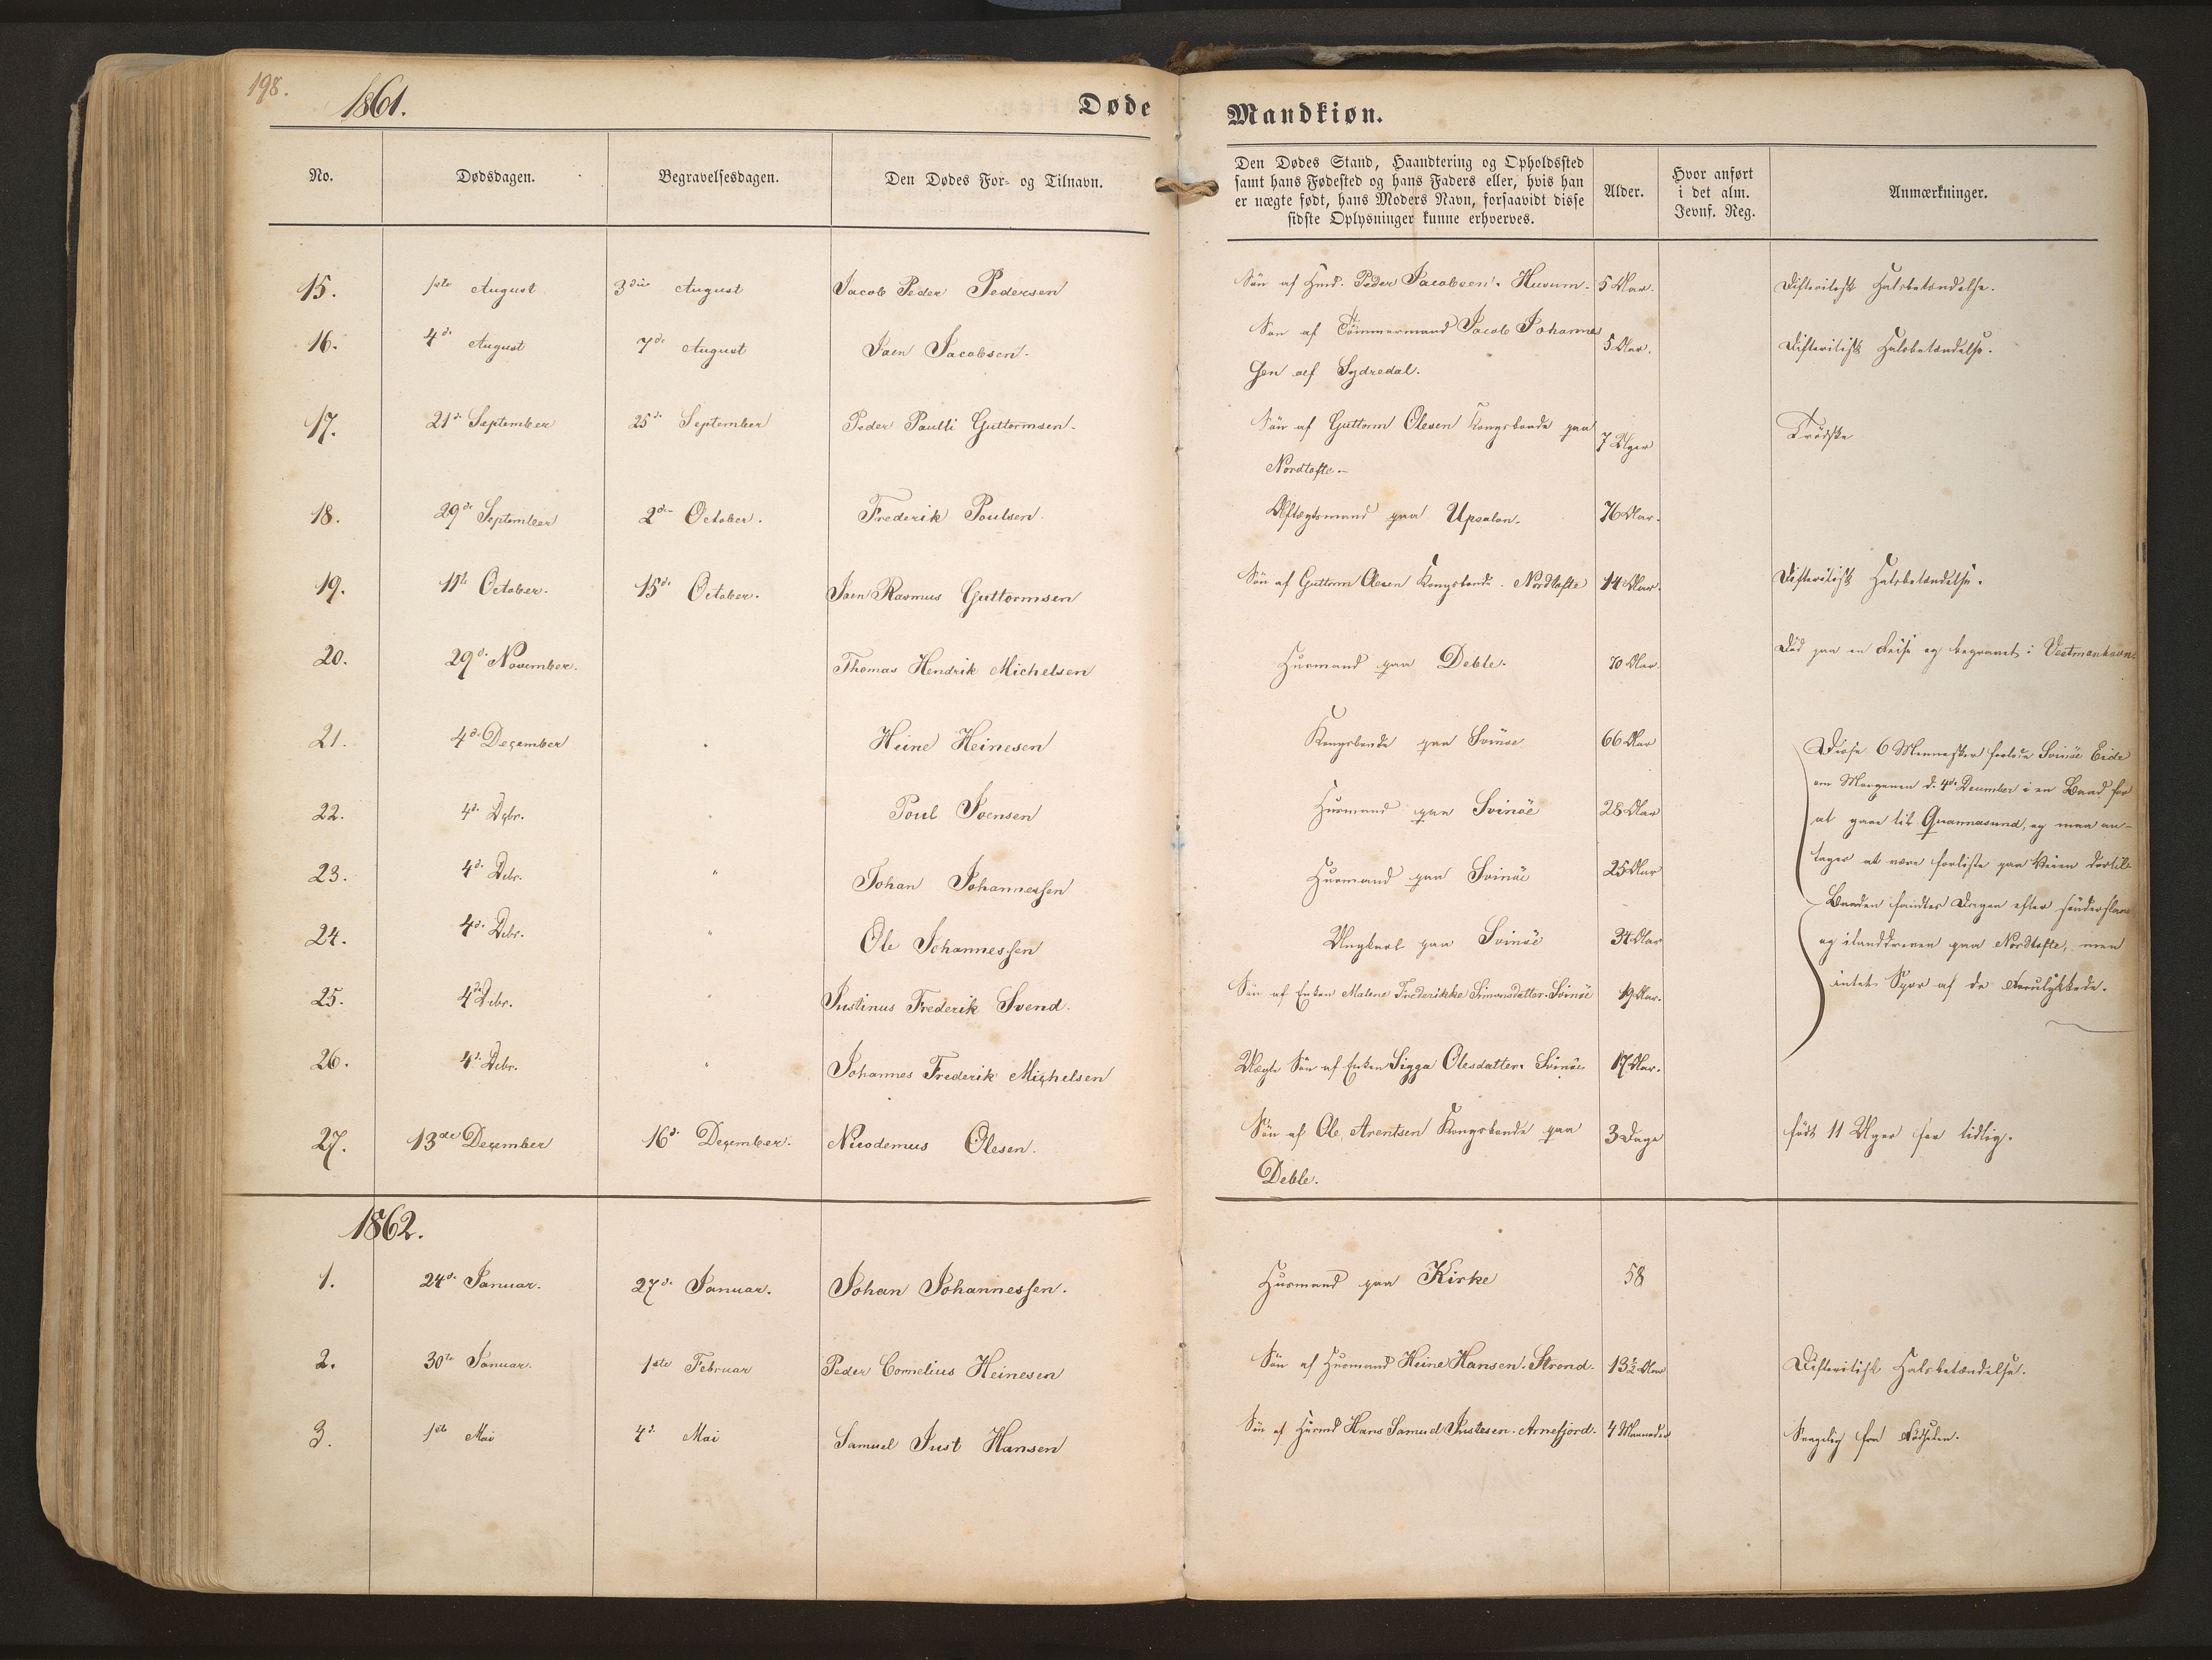 198.
1861.
Døde
Mandkiøn.
No.
Dødsdagen.
Begravelsesdagen.
Den Dødes For- og Tilnavn.
Den Dødes Stand, Haandtering og Opholdssted
samt hans Fødested og hans Faders eller, hvis han
er uægte født, hans Moders Navn, forsaavidt disse
sidste Oplysninger kunne erhverves.
Alder.
Hvor anført
i det alm.
Jevnf. Reg.
Anmærkninger.
15. 1ste August 3die August Jacob Peder Pedersen Søn af Husmd. Peder Jacobsen. Husum. 5 Aar. Difteritisk Halsbetændelse.
16. 4de August 7de August Joen Jacobsen. Søn af Tömmermand Jacob Johannes
sen af Sydredal. 5 Aar. Difteritisk Halsbetændelse.
17. 21de September 25de September Peder Paulli Guttormsen. Søn af Guttorm Olesen Kongsbonde paa
Nordtofte. 7 Uger Trødske
18. 29de September 2den October. Frederik Poulsen. Aftægtsmand paa Upsalon. 76 Aar.
19. 11te October. 15de October. Joen Rasmus Guttormsen Søn af Guttorm Olesen Kongsbonde. Nordtofte 14 Aar. Difteritisk Halsbetændelse.
20. 29de November. Thomas Hendrik Michelsen Husmand paa Deble. 70 Aar. Død paa en Reise og begravet i Vestmanhavn
21. 4de December Heine Heinesen Kongsbonde paa Svinöe 66 Aar
22. 4de Dcbr. Poul Joensen Husmand paa Svinöe 28 Aar
23. 4de Debr. " Johan Johannessen Husmand paa Svinöe 25 Aar
24. 4de Debr. " Ole Johannessen Ungkarl paa Svinöe 34 Aar
25. 4de Debr. " Justinus Frederik Svend. Søn af Enken Malene Frederikke Simonsdatter. Svinöe 19 Aar.
26. 4de Debr. " Johannes Frederik Michelsen Uægte Søn af Enken Sigga Olesdatter. Svinöe 17 Aar.
Disse 6 Mennesker forlode Svinöe Eide
om Morgenen d. 4de December i en Baad for
at gaae til Quannasund, og maa an-
tages at være forliste paa Veien dertil
Baaden fandtes Dagen efter sönderslaaet
og ilanddreven paa Nordtofte, men
intet Spor af de Forulykkede.
27. 13de December 16de December. Nicodemus Olesen. Søn af Ole Arentsen Kongsbonde paa
Deble. 3 Dage født 11 Uger for tidlig.
1862.
1. 24de Januar. 27de Januar. Johan Johannessen. Husmand paa Kirke 58
2. 30te Januar. 1ste Februar Peder Cornelius Heinesen Søn af Husmand Heine Hansen. Strond. 13½ Aar Difteritisk Halsbetændelse.
3. 1ste Mai 4de Mai Samuel Just Hansen Søn af Husmd Hans Samuel Justesen. Arnefjord. 4 Maaneder Svagelig fra Fødselen.